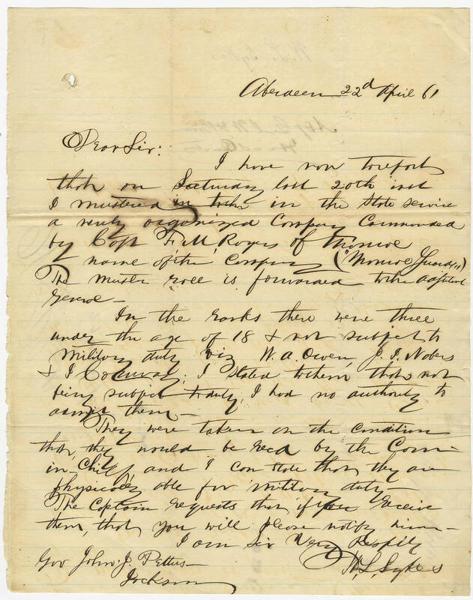 Aberdeen 22d April 61
Dear Sir:
I have now to report
that on Saturday last 20th inst
I mustered in to the State service
a newly organized Company Commanded
by Capt F M Rogers of Monroe
name of the Company ("Monroe Guards")
The muster roll is forwarded to the Adjutant
General —
In the ranks there were three
under the age of 18 & not subject to
military duty, viz W. A. Owen, J. I.
& I I stated to them that not
being subject to duty, I had no authority to
them —
They were taken on the condition
that they would be recd by the Com
in Chief, and I can state that they are
physically able for military duty
The Captain requests that if you receive
them, that you will please notify him —
I am Sir Very Respfly
Gov John J. Pettus
Jackson
W. L. Sykes